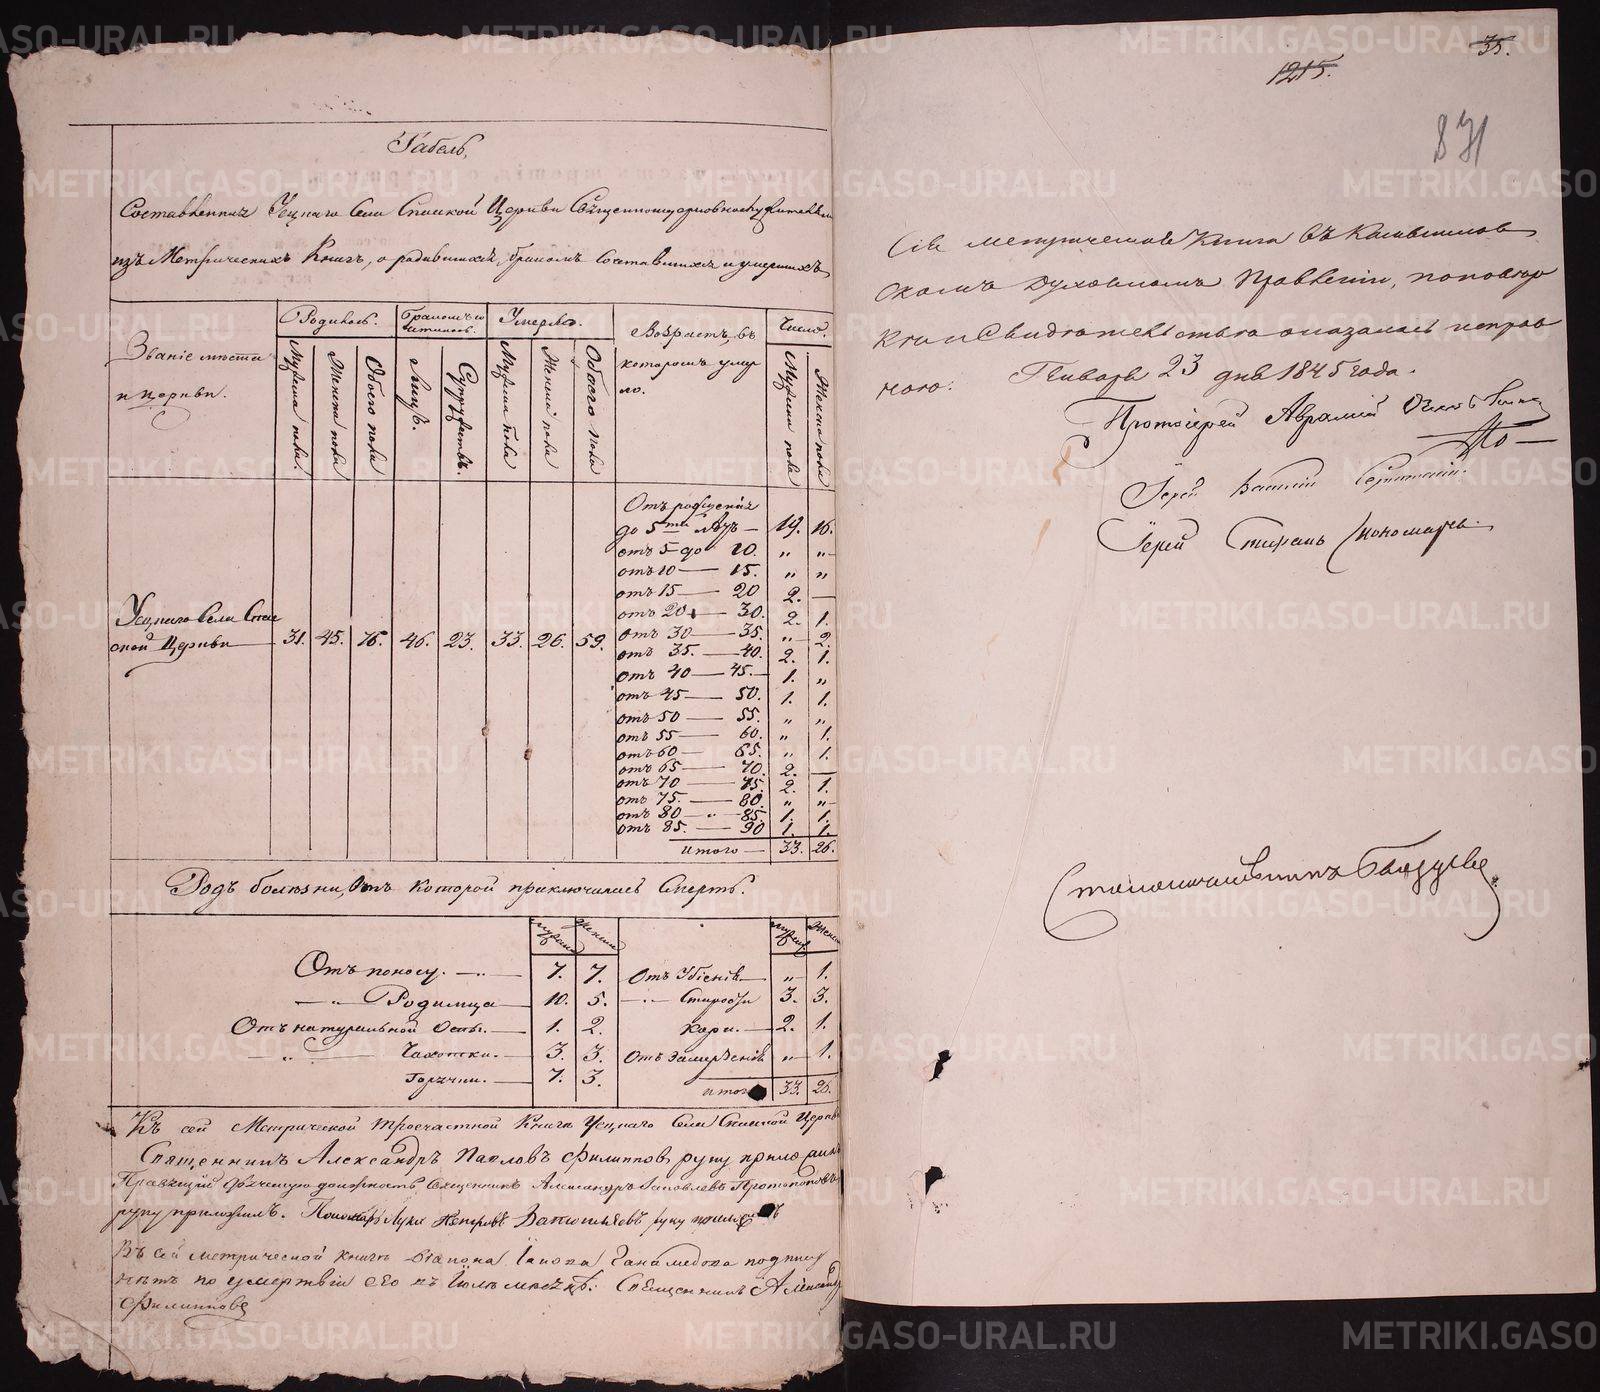 Табель,
Составленная Уецкаго Села Спасской Церкви Священноцерковнослужителями
изъ Метрическихъ Книгъ, о родившихся, бракомъ сочетавшихся и умершихъ
Званіе мѣста и церкви.
Родилось.
Мужеска пола.
Женска пола
Обоего пола
Бракомъ сочетались.
Лицъ.
Супружествъ.
Умерло.
Мужеска пола
Женска пола
Обоего пола
Возрастъ, въ которомъ умерло.
Число.
Мужеска пола
Женска пола
Уецкаго Села Спас
ской Церкви 31. 45. 76. 46. 23. 33. 26. 59.
Отъ рожденія
до 5ти лѣтъ — 19. 16.
отъ 5 до 10. „ „
отъ 10 — 15. „ „
отъ 15 — 20 2. —
отъ 20 — 30. 2. 1.
отъ 30 — 35. „ 2.
отъ 35. — 40. 2. 1.
отъ 40 — 45. — 1. „
отъ 45 — 50. 1. 1.
отъ 50 — 55. „ „
отъ 55 — 60. „ 1.
отъ 60 — 65. „ 1.
отъ 65 — 70. 2. —
отъ 70 — 75. 2. 1.
отъ 75. — 80. „ „
отъ 80 — 85. 1. 1.
отъ 85. — 90 1. 1.
итого — 33. 26.
Родъ болѣзни, отъ которой приключилась Смерть.
мужеск женска мужеск женска
Отъ поносу. — 7. 7. Отъ Убіенія — „ 1.
— „ Родимца — 10. 5. — „ Старости 3. 3.
Отъ натуральной Оспы. — 1. 2. Кори. — 2. 1.
— „ — Чахотки. — 3. 3. Отъ Замерзенія „ 1.
Горячки. — 7. 3. итого 33. 26.
Къ сей Метрической троечастной Книгѣ Уецкаго Села Спасской Церкви
Священникъ Александръ Павловъ Филипповъ руку приложилъ
Правящій дьяческую должность Священникъ Александръ Іаковлевъ Протопоповъ
руку приложилъ. Пономарь Лука Петровъ руку приложилъ
Въ сей метрической книгѣ діакона Іакова Ганимедова подпису
нѣтъ по умертвіи его въ Іюлѣ месяцѣ: Священникъ Александръ
Филипповъ
35.
1215.
831
Сія метрическая Книга въ Камышлов
скомъ Духовномъ Правленіи, по повѣр
кѣ и Свидѣтельствѣ оказалась исправ
ною. Генваря 23 дня 1845 года.
Протоіерей Аврамій
Іерей Василій
Іерей Стефанъ Пономаревъ
Столоначальникъ
METRIKI.GASO-URAL.RU